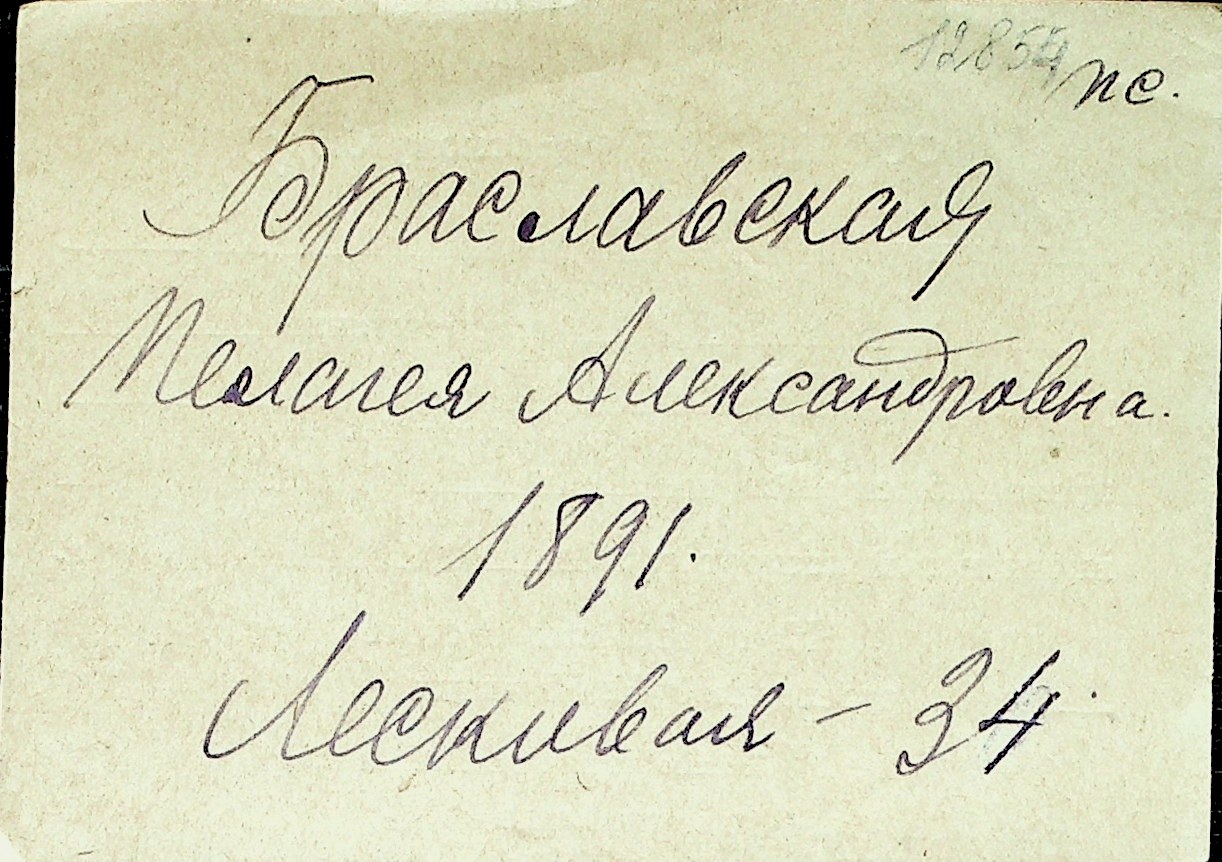 12854
пс.
Браславская
Пелагея Александровна.
1891.
Лескивая – 34.